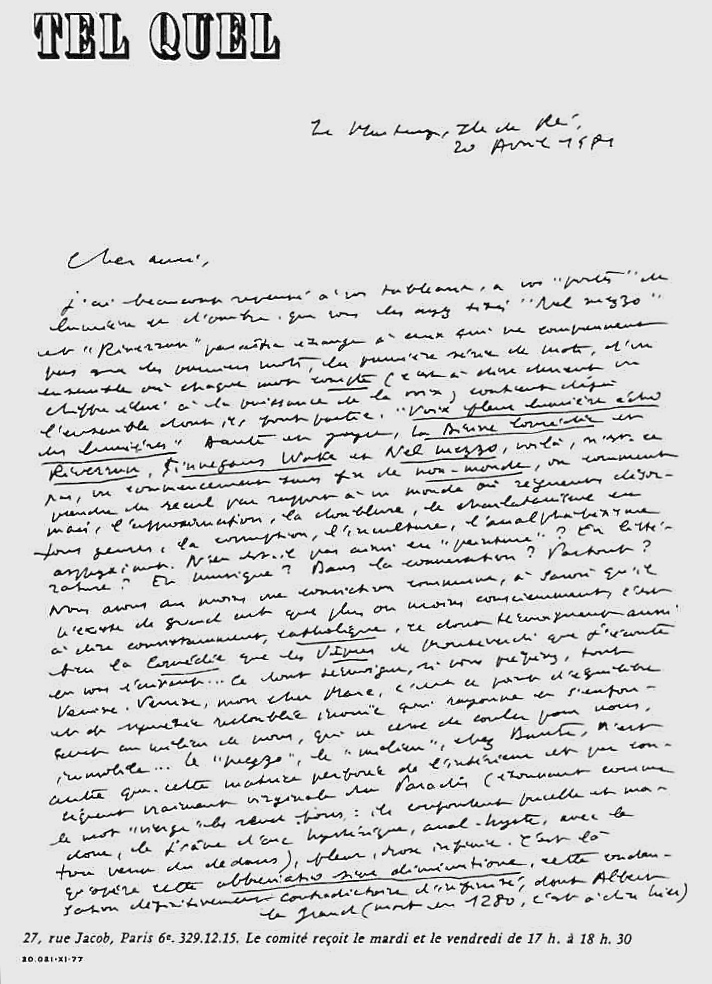 TEL QUEL
Le Martray, Ile de Ré,
20 Avril 1981
Cher ami,
j'ai beaucoup repensé à vos tableaux, à vos "portes" de
lumière et d'ombre. que vous les ayez titrés "Nel mezzo"
et "Riverrun" paraîtra étrange à ceux qui ne comprennent
pas que les premiers mots, la première série de mots, d'un
ensemble où chaque mot compte (c'est à dire devient un
chiffre élevé à la puissance de la voix) contient déjà
l'ensemble dont ils font partie. "Voix pleine lumière écho
des lumières" Dante en gagne, La Divine Comédie et
Riverrun, Finnegans Wake et Nel mezzo, voilà, n'est-ce
pas, un commencement sans fin de non-monde, ou comment
prendre du recul par rapport à un monde où règnent désor-
mais, l'approximation, la doublure, le charlatanisme en
tous genres, la corruption, l'inculture, l'analphabétisme
asphyxiant. N'en est-il pas ainsi en "peinture"? En litté-
rature? En musique? Dans la conversation? Partout?
Nous avons au moins une conviction commune, à savoir qu'il
n'existe de grand art que plus ou moins consciemment, c'est
à dire constamment, catholique, ce dont témoignent aussi
bien la Comédie que les Vêpres de Monteverdi que j'écoute
en vous écrivant... Ce dont témoigne, si vous préférez, toute
Venise. Venise, mon cher Marc, c'est ce point d'équilibre
et de symétrie redoublée inouïe qui rayonne en s'enfon-
çant au milieu de nous, qui ne cesse de couler pour nous,
immobile... le "mezzo", le "milieu", chez Dante, n'est
autre que cette matrice perforée de l'intérieur et par con-
séquent vraiment virginale du Paradis (étonnant comme
le mot "vierge" les rend fous: ils confondent pucelle et ma-
done, le drame d'une hystérique, anal-hyste, avec le
trou venu du dedans), fleur, rose infinie. C'est là
qu'opère cette abbreviatio sive diminutione, cette conden-
sation définitivement contradictoire d'infinité, dont Albert
le Grand (mort en 1280, c'est à dire hier)
27, rue Jacob, Paris 6e. 329.12.15. Le comité reçoit le mardi et le vendredi de 17 h. à 18 h. 30
20.021-XI-77